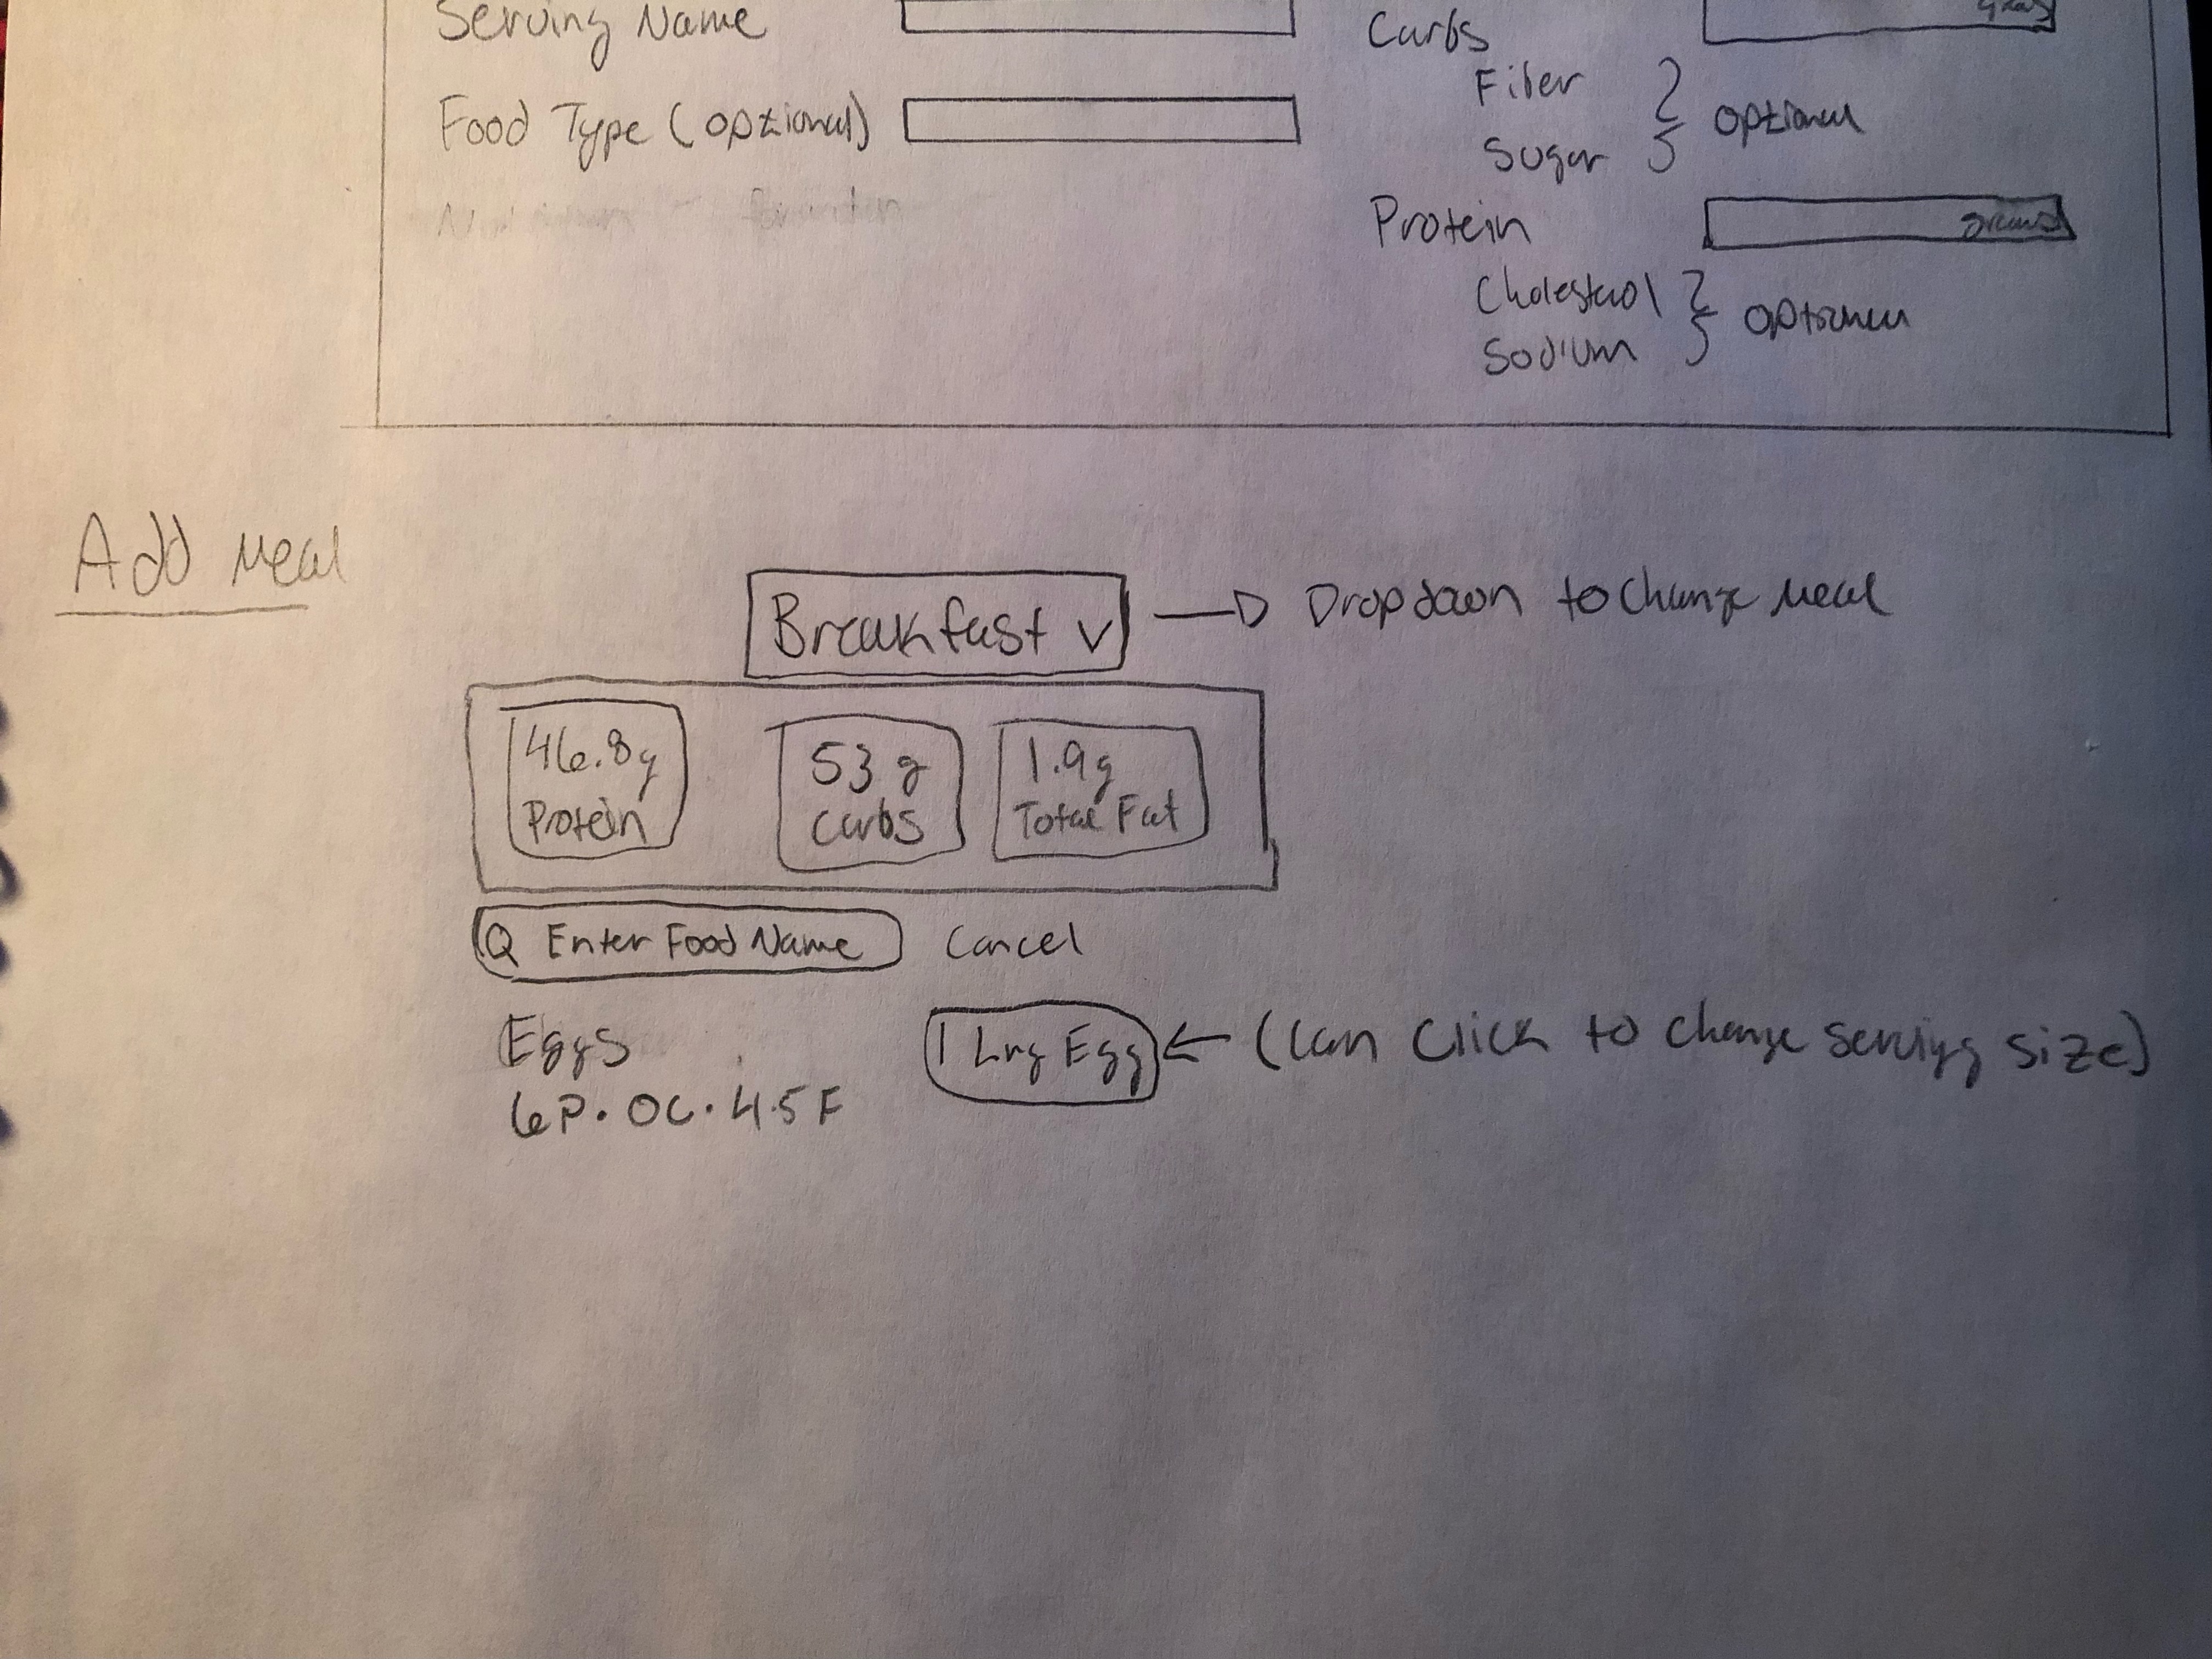 Serving Name
Food Type (optional)
Carbs
Fiber
Sugar
optional
Protein
grams
Cholestrol
Sodium
optional
Add Meal
Breakfast v
Dropdown to change Meal
46.8g
Protein
53 g
Carbs
1.9g
Total Fat
Enter Food Name
Cancel
Eggs
6P. 0C. 4.5F
1 Lrg Egg
(Can Click to change serving size)